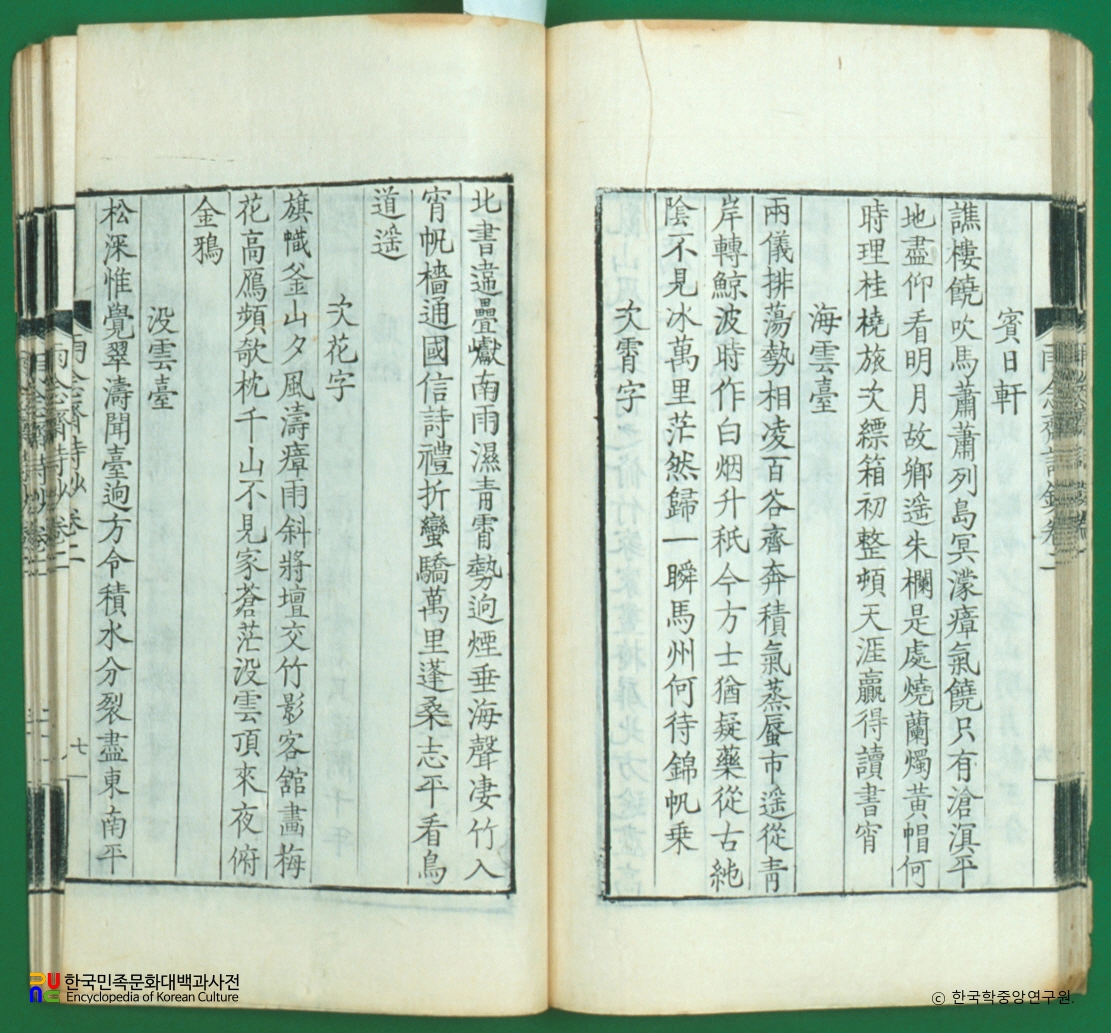 賓日軒
譙樓饒吹馬蕭蕭列島冥濛瘴氣饒只有滄溟平
地盡仰看明月故鄉遥朱欄是處燒蘭燭黄帽何
時理桂橈旅次縹箱初整頓天涯贏得讀書宵
海雲臺
兩儀排蕩勢相凌百谷齋奔積氣蒸蜃市遥從青
岸轉鯨波時作白烟升秖今方士猶疑藥從古純
陰不見冰萬里茫然歸一瞬馬州何待錦帆乗
次霄字
北書違疊巘南雨濕青霄勢逈煙垂海聲凄竹入
宵帆檣通國信詩禮折蠻驕萬里蓬桑志平看鳥
道遥
次花字
旗幟釜山夕風濤瘴雨斜將壇交竹影客舘畵梅
花高鴈頻欹枕千山不見家蒼茫没雲頂來夜俯
金鴉
没雲臺
松深惟覺翠濤聞臺逈方令積水分裂盡東南平
雨念齋詩抄卷二
七
한국민족문화대백과사전
Encyclopedia of Korean Culture
ⓒ 한국학중앙연구원.